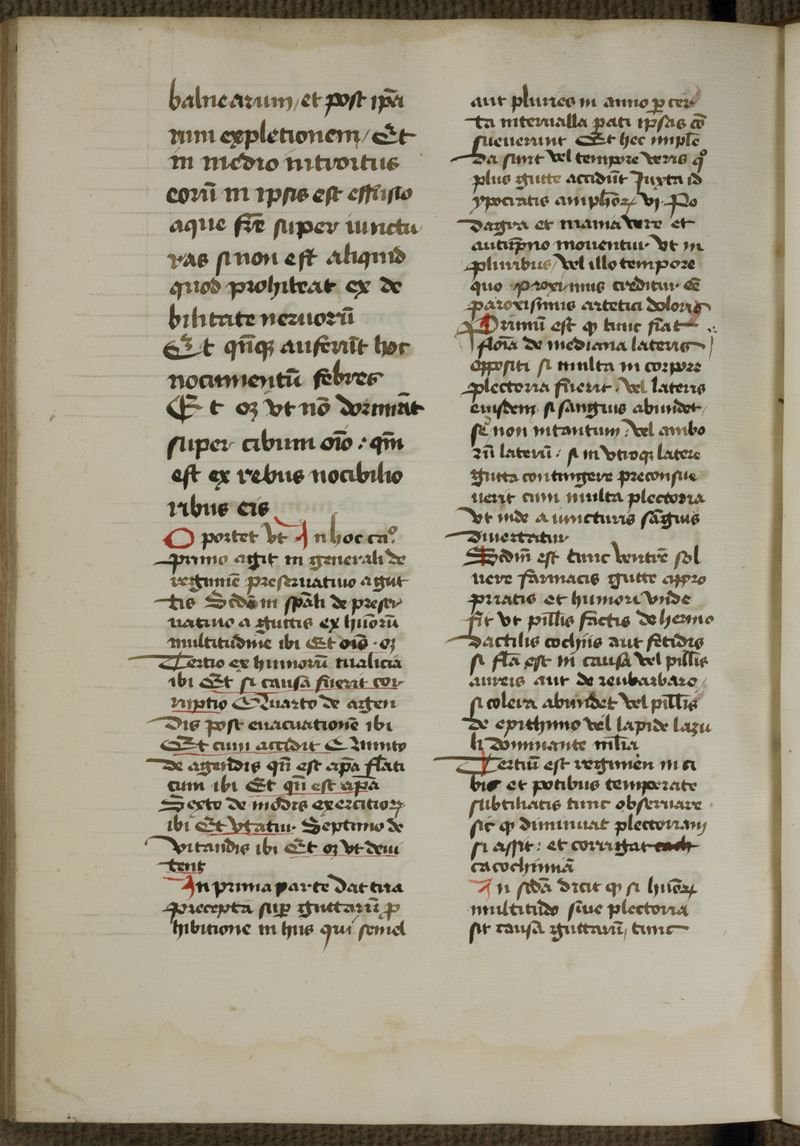 balnearum, et post ip̄a
rum expletionem, Et
in medio introitus
eorū in ipsis est effusio
aque frē super iunctu
ras si non est aliquid
quod prohibeat ex de
bilitate neruorū
Et qn̄q; auferūt hoc
nocumentū febres
Et oꝫ vt nō dormiāt
super cibum oīo : qm̄
est ex rebus nocibilio
ribus eis
Oportet vt In hoc ca.º
primo agit in generali de
regimīe preseruatiuo a gut
tis Scd̄o in spāli de preser
uatiuo a guttis ex hūorū
multitudīne ibi Et oīo oꝫ
Tertio ex humorū malicia
ibi Et si causā fuerit cor
ruptio Quarto de agen
dis post euacuationē ibi
Et cum accidit Quinto
de agendis qn̄ est apā flati
cum ibi Et qn̄ est apā
Sexto de modis exercitioꝝ
ibi Et vtatur Septimo de
vitandis ibi Et oꝫ vt deui
tent
In prima parte dat tria
precepta suꝑ guttarū ꝓ
hibitione in hiis qui semel
aut pluries in anno ꝑ cer
ta interualla ꝑati ipsas cō
sueuerunt Et hec implē
da sunt vel tempore veris qͦ
plus gutte accidūt Iuxta id
ypocratis amphoꝝ vi Po
dagra et mania vere et
autūpno mouentur vt in
pluribus, vel illo tempore
quo proximus creditur eē
paroxismus artetici doloris
Primū est ꝙ tunc fiat
flōia de mediana lateris
oppositi si multa in corpore
plectoria fuerit, vel lateris
eiusdem si sanguis abundet
sꝫ non intantum, vel ambo
rū laterū, si in vtroqꝫ latere
gutta contingere preconsue
uerit cum multa plectoria
vt inde a iuncturis sāguis
diuertatur
Scd̄m est tunc ventrē sol
uere farmacis gutte appro
priatis et humori vnde
fit vt pillis factis de hermo
dactilis cochiis aut fetidis
si flā est in causa vel pillis
aureis aut de reubarbaro
si colera abundet vel pillis
de epithimo vel lapide lazu
li dominante mīlia
Tertiū est regimen in ci
bis et potibus temperate
subtiliatis tunc obseruare
sic ꝙ diminuat plectoriam
si assit : et corrigat
cacochimiā
In scd̄a dicit ꝙ si hūoꝝ
multitudo siue plectoria
sit causa guttarū, tunc